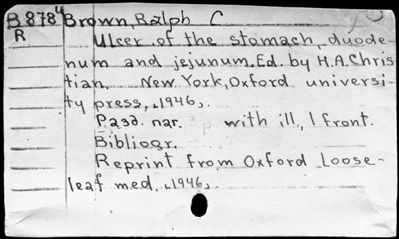 B8784 Brown, Ralph C
R Ulcer of the stomach, duode-
num and jejunum. Ed. by H.A. Chris
tian. New York, Oxford universi-
ty press, 1946.
P.233. nar. with ill, 1 front.
Bibliogr.
Reprint from Oxford Loose-
leaf med. 1946.